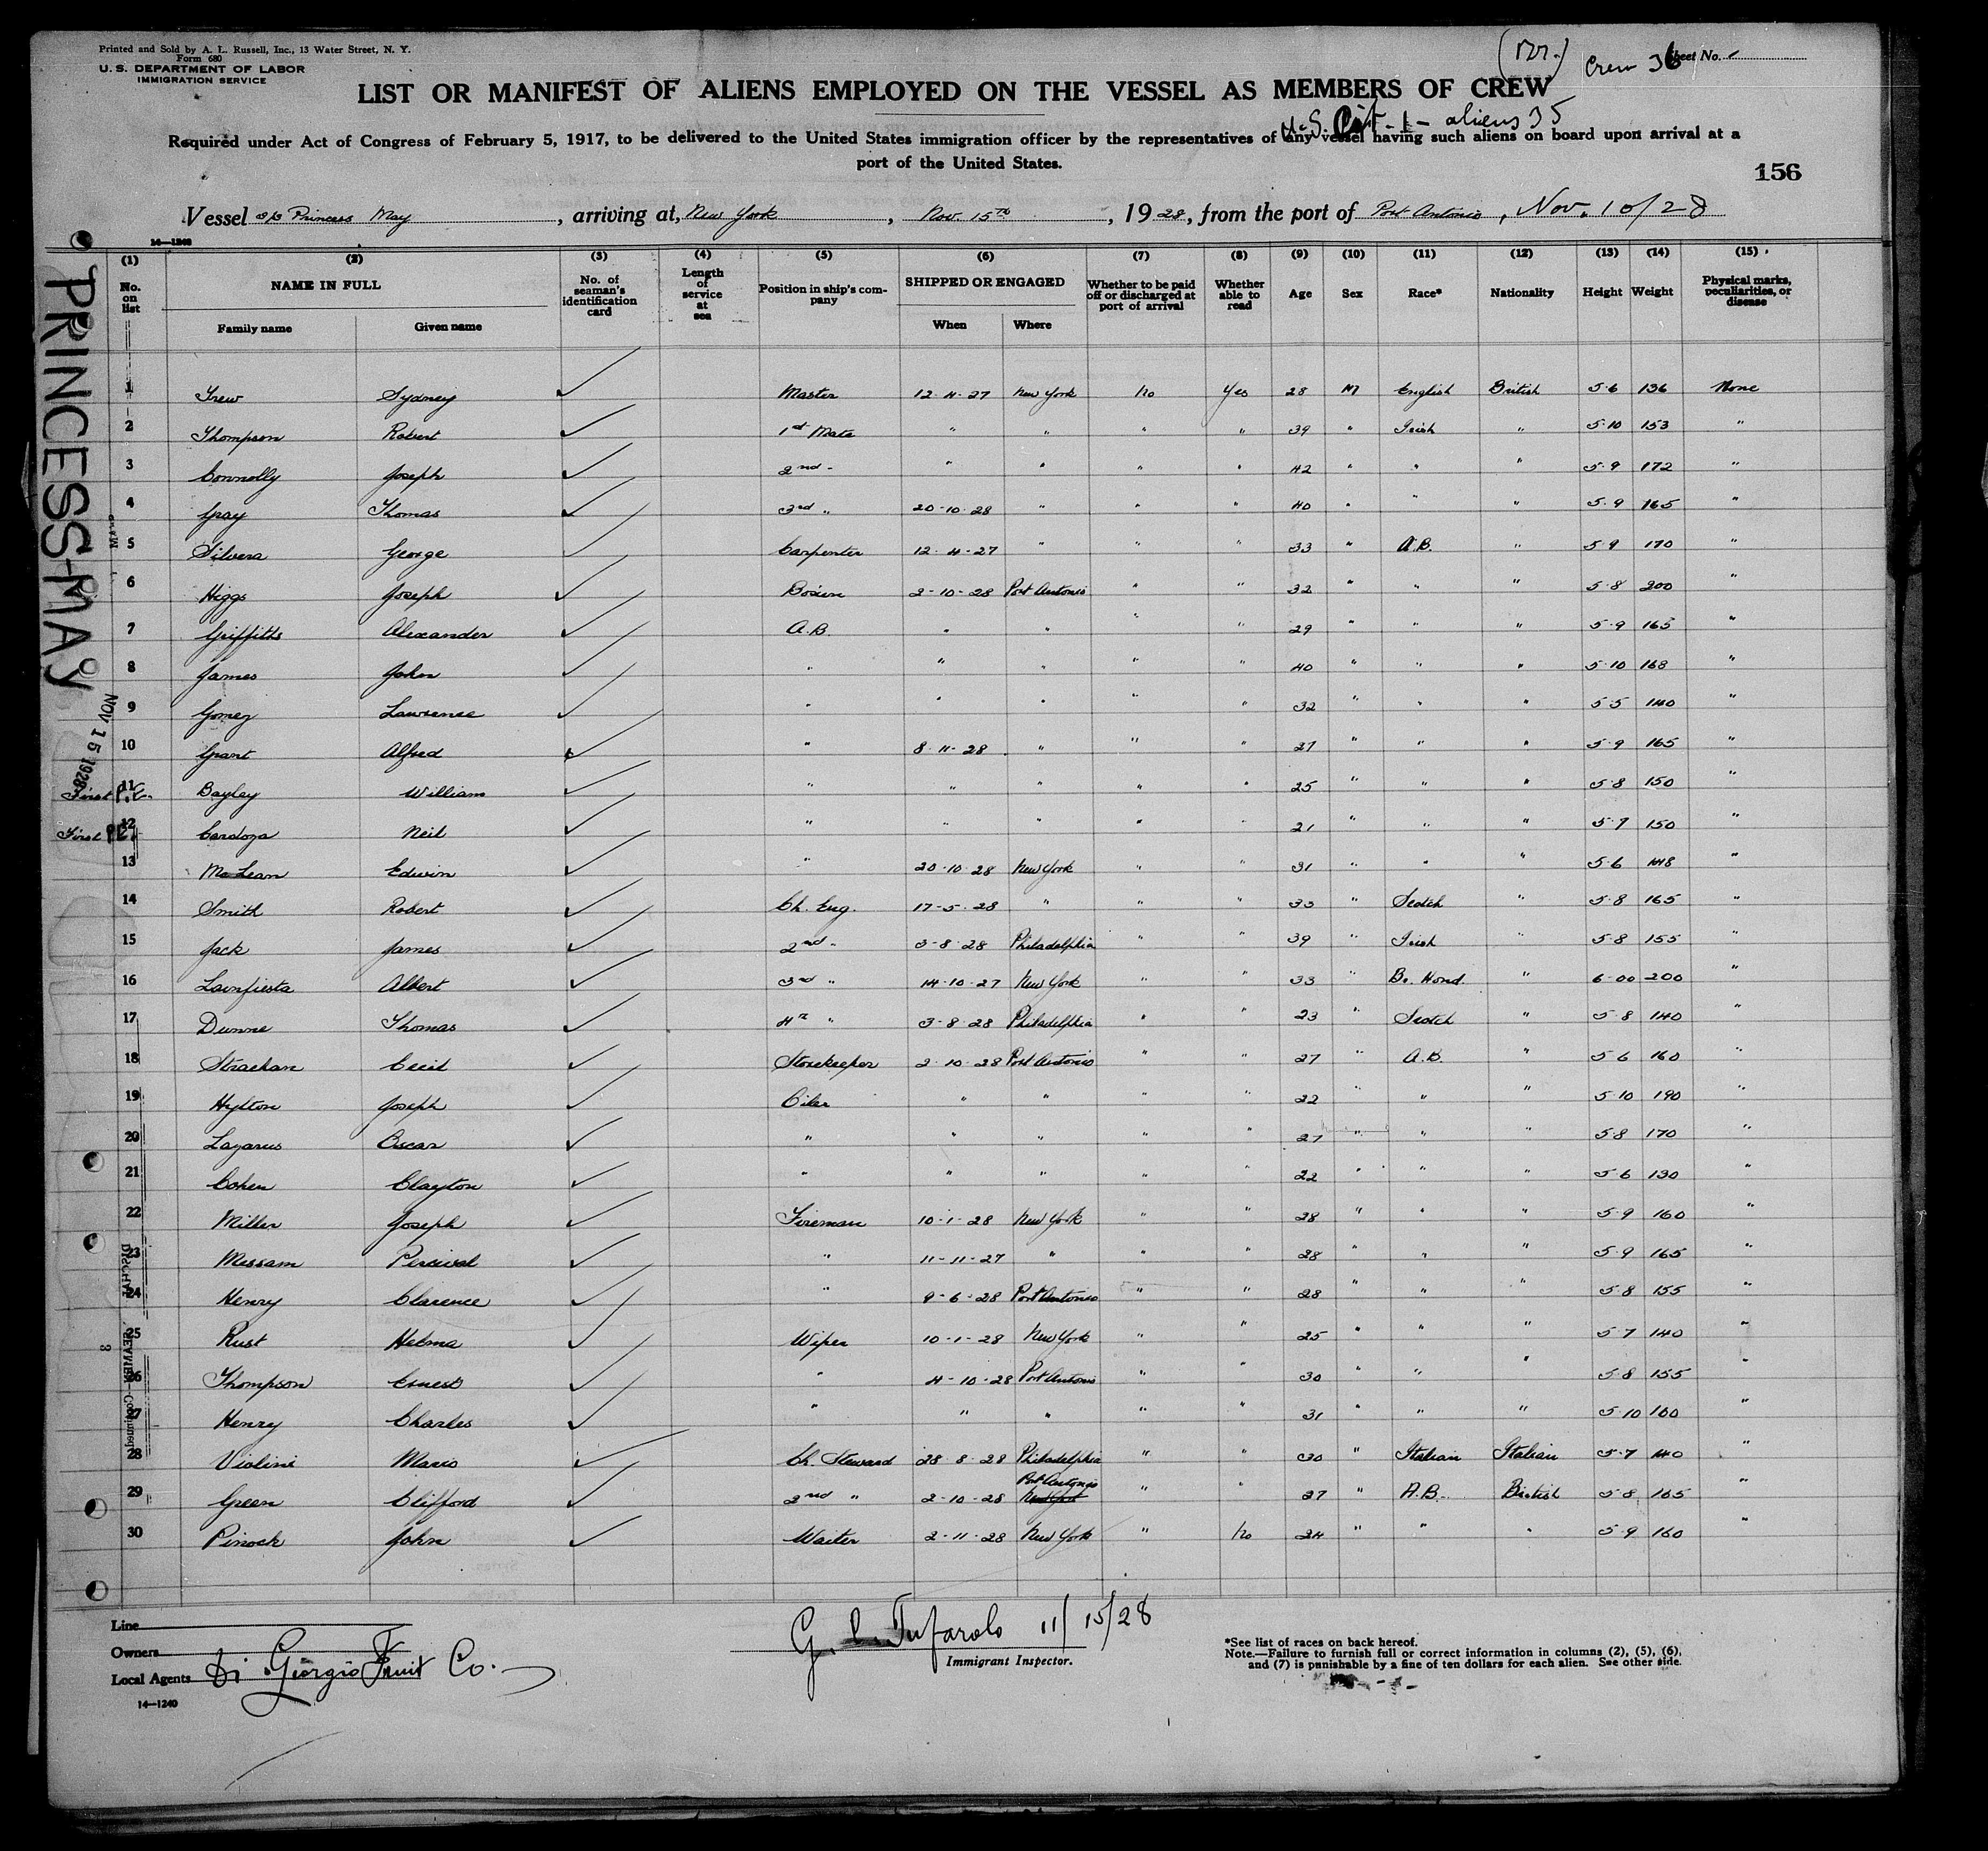 Printed and Sold by A. L. Russell, Inc., 13 Water Street, N. Y.
Form 680
U. S. DEPARTMENT OF LABOR
IMMIGRATION SERVICE
Crew 36
Sheet No.
LIST OR MANIFEST OF ALIENS EMPLOYED ON THE VESSEL AS MEMBERS OF CREW
U.S. Cit - 1 - aliens 35
Required under Act of Congress of February 5, 1917, to be delivered to the United States immigration officer by the representatives of any vessel having such aliens on board upon arrival at a
port of the United States.
156
Vessel s/s Princess May, arriving at, New York, Nov. 15th, 1928, from the port of Port Antonio, Nov. 10/28
14—1240
PRINCESS-MAY
NOV 15 1928
(1) (2) (3) (4) (5) (6) (7) (8) (9) (10) (11) (12) (13) (14) (15)
No. on list NAME IN FULL No. of seaman's identification card Length of service at sea Position in ship's company SHIPPED OR ENGAGED Whether to be paid off or discharged at port of arrival Whether able to read Age Sex Race* Nationality Height Weight Physical marks, peculiarities, or disease
Family name Given name When Where
1 Trew Sydney ✓ Master 12-4-27 New York No Yes 28 M English British 5-6 136 None
2 Thompson Robert ✓ 1st Mate " " " " 39 " Irish " 5-10 153 "
3 Connolly Joseph ✓ 2nd " " " " " 42 " " " 5-9 172 "
4 Gray Thomas ✓ 3rd " 20-10-28 " " " 40 " " " 5-9 165 "
5 Silvera George ✓ Carpenter 12-4-27 " " " 33 " A.B. " 5-9 170 "
6 Higgs Joseph ✓ Bosun 2-10-28 Port Antonio " " 32 " " " 5-8 200 "
7 Griffiths Alexander ✓ A.B. " " " " 29 " " " 5-9 165 "
8 James John ✓ " " " " " 40 " " " 5-10 168 "
9 Gomez Lawrence ✓ " " " " " 32 " " " 5-5 140 "
10 Grant Alfred ✓ " 8-11-28 " " " 27 " " " 5-9 165 "
First P.E. 11 Bayley William ✓ " " " " " 25 " " " 5-8 150 "
First P.E. 12 Cardoza Neil ✓ " " " " " 21 " " " 5-7 150 "
13 McLean Edwin ✓ " 20-10-28 New York " " 31 " " " 5-6 148 "
14 Smith Robert ✓ Ch. Eng. 17-5-28 " " " 33 " Scotch " 5-8 165 "
15 Jack James ✓ 2nd " 3-8-28 Philadelphia " " 39 " Irish " 5-8 155 "
16 Lainfiesta Albert ✓ 3rd " 14-10-27 New York " " 33 " Br. Hond. " 6-00 200 "
17 Dunne Thomas ✓ 4th " 3-8-28 Philadelphia " " 23 " Scotch " 5-8 140 "
18 Strachan Cecil ✓ Storekeeper 2-10-28 Port Antonio " " 27 " A.B. " 5-6 160 "
19 Hylton Joseph ✓ Oiler " " " " 22 " " " 5-10 190 "
20 Lazarus Oscar ✓ " " " " " 27 " " " 5-8 170 "
21 Cohen Clayton ✓ " " " " " 22 " " " 5-6 130 "
22 Miller Joseph ✓ Fireman 10-1-28 New York " " 28 " " " 5-9 160 "
23 Messam Percival ✓ " 11-11-27 " " " 28 " " " 5-9 165 "
24 Henry Clarence ✓ " 9-6-28 Port Antonio " " 28 " " " 5-8 155 "
25 Rust Helma ✓ Wiper 10-1-28 New York " " 25 " " " 5-7 140 "
26 Thompson Ernest ✓ " 4-10-28 Port Antonio " " 30 " " " 5-8 155 "
27 Henry Charles ✓ " " " " " 31 " " " 5-10 160 "
28 Violini Mario ✓ Ch. Steward 28-8-28 Philadelphia " " 30 " Italian Italian 5-7 140 "
29 Green Clifford ✓ 2nd " 2-10-28 Port Antonio New York " " 27 " A.B. British 5-8 165 "
30 Pinock John ✓ Waiter 2-11-28 New York " No 24 " " " 5-9 160 "
Line
Owners
Local Agents Di Giorgio Fruit Co.
14—1240
G. Tufarolo 11/15/28
Immigrant Inspector.
*See list of races on back hereof.
Note.—Failure to furnish full or correct information in columns (2), (5), (6),
and (7) is punishable by a fine of ten dollars for each alien. See other side.